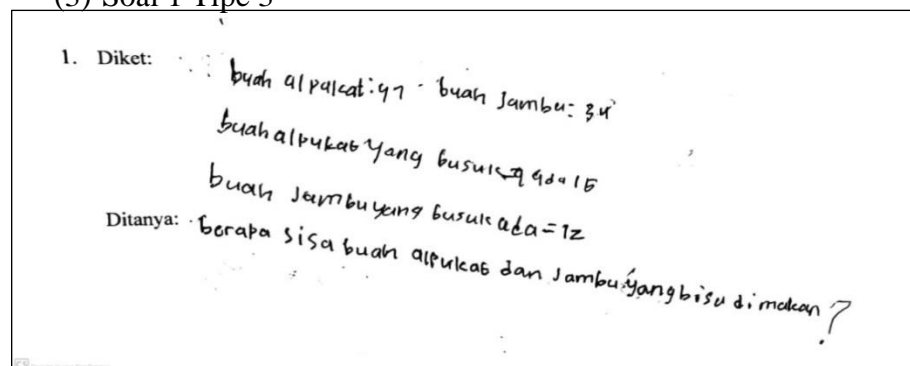 (3) Soal 1 Tipe 3
1. Diket:
buah alpukat: 47 buah Jambu: 34
buah alpukat yang busuk ada 15
buah Jambu yang busuk ada = 12
Ditanya: berapa sisa buah alpukat dan Jambu yang bisa dimakan?